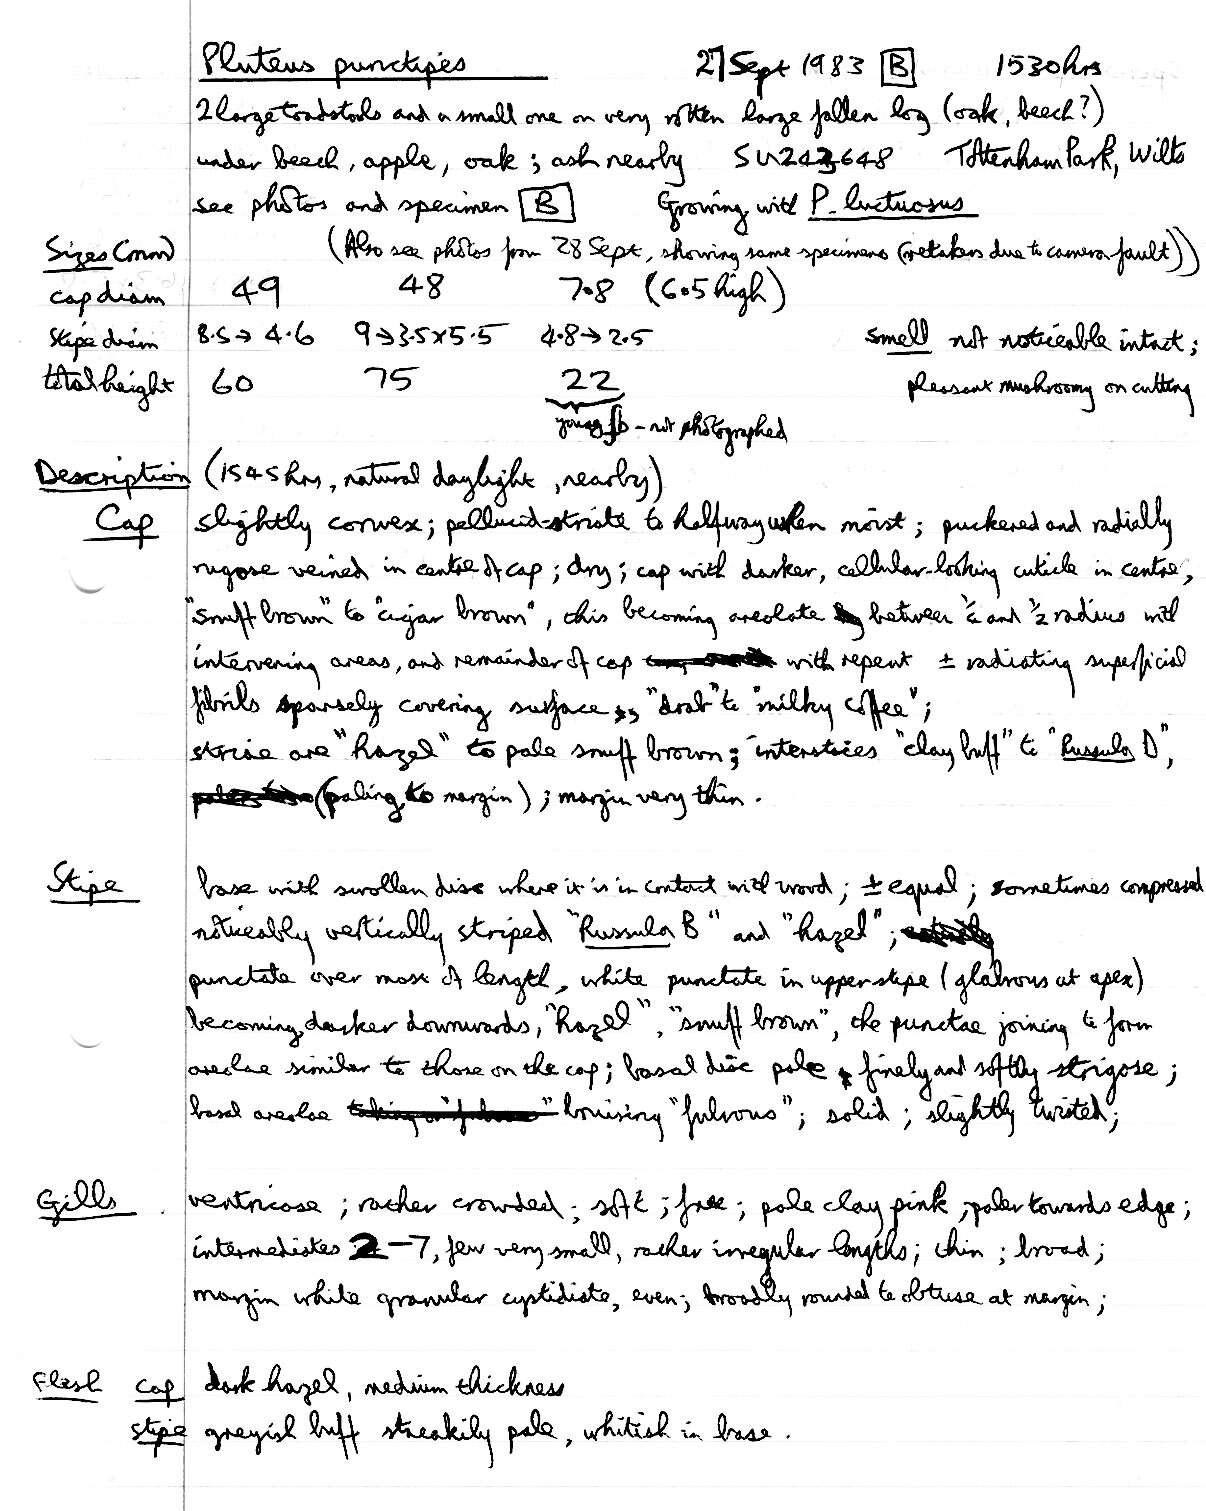 Pluteus punctipes 27 Sept 1983 B 1530hrs
2 large toadstools and a small one on very rotten large fallen log (oak, beech?)
under beech, apple, oak; ash nearby SU243648 Tottenham Park, Wilts
see photos and specimen B Growing with P. luctuosus
Sizes (mm) (Also see photos from 28 Sept, showing same specimens (retakes due to camera fault))
cap diam 49 48 7.8 (6.5 high)
stipe diam 8.5→4.6 9→3.5x5.5 4.8→2.5 smell not noticeable intact;
total height 60 75 22 pleasant mushroomy on cutting
young fb - not photographed
Description (1545hrs, natural daylight, nearby)
Cap slightly convex; pellucid-striate to halfway when moist; puckered and radially
rugose veined in centre of cap; dry; cap with darker, cellular-looking cuticle in centre,
"snuff brown" to "cigar brown", this becoming areolate between ¼ and ½ radius with
intervening areas, and remainder of cap with repent ± radiating superficial
fibrils sparsely covering surface, "drab" to "milky coffee";
striae are "hazel" to pale snuff brown; interstices "clay buff" to "Russula D",
(paling to margin); margin very thin.
Stipe base with swollen disc where it is in contact with wood; ± equal; sometimes compressed
noticeably vertically striped "Russula B" and "hazel";
punctate over most of length, white punctate in upper stipe (glabrous at apex)
becoming darker downwards, "hazel", "snuff brown", the punctae joining to form
areolae similar to those on the cap; basal disc pale, finely and softly strigose;
basal areolae bruising "fulvous"; solid; slightly twisted;
Gills ventricose; rather crowded; soft; free; pale clay pink; paler towards edge;
intermediates 2-7, few very small, rather irregular lengths; thin; broad;
margin white granular cystidiate, even; broadly rounded to obtuse at margin;
Flesh cap dark hazel, medium thickness
stipe greyish buff streakily pale, whitish in base.